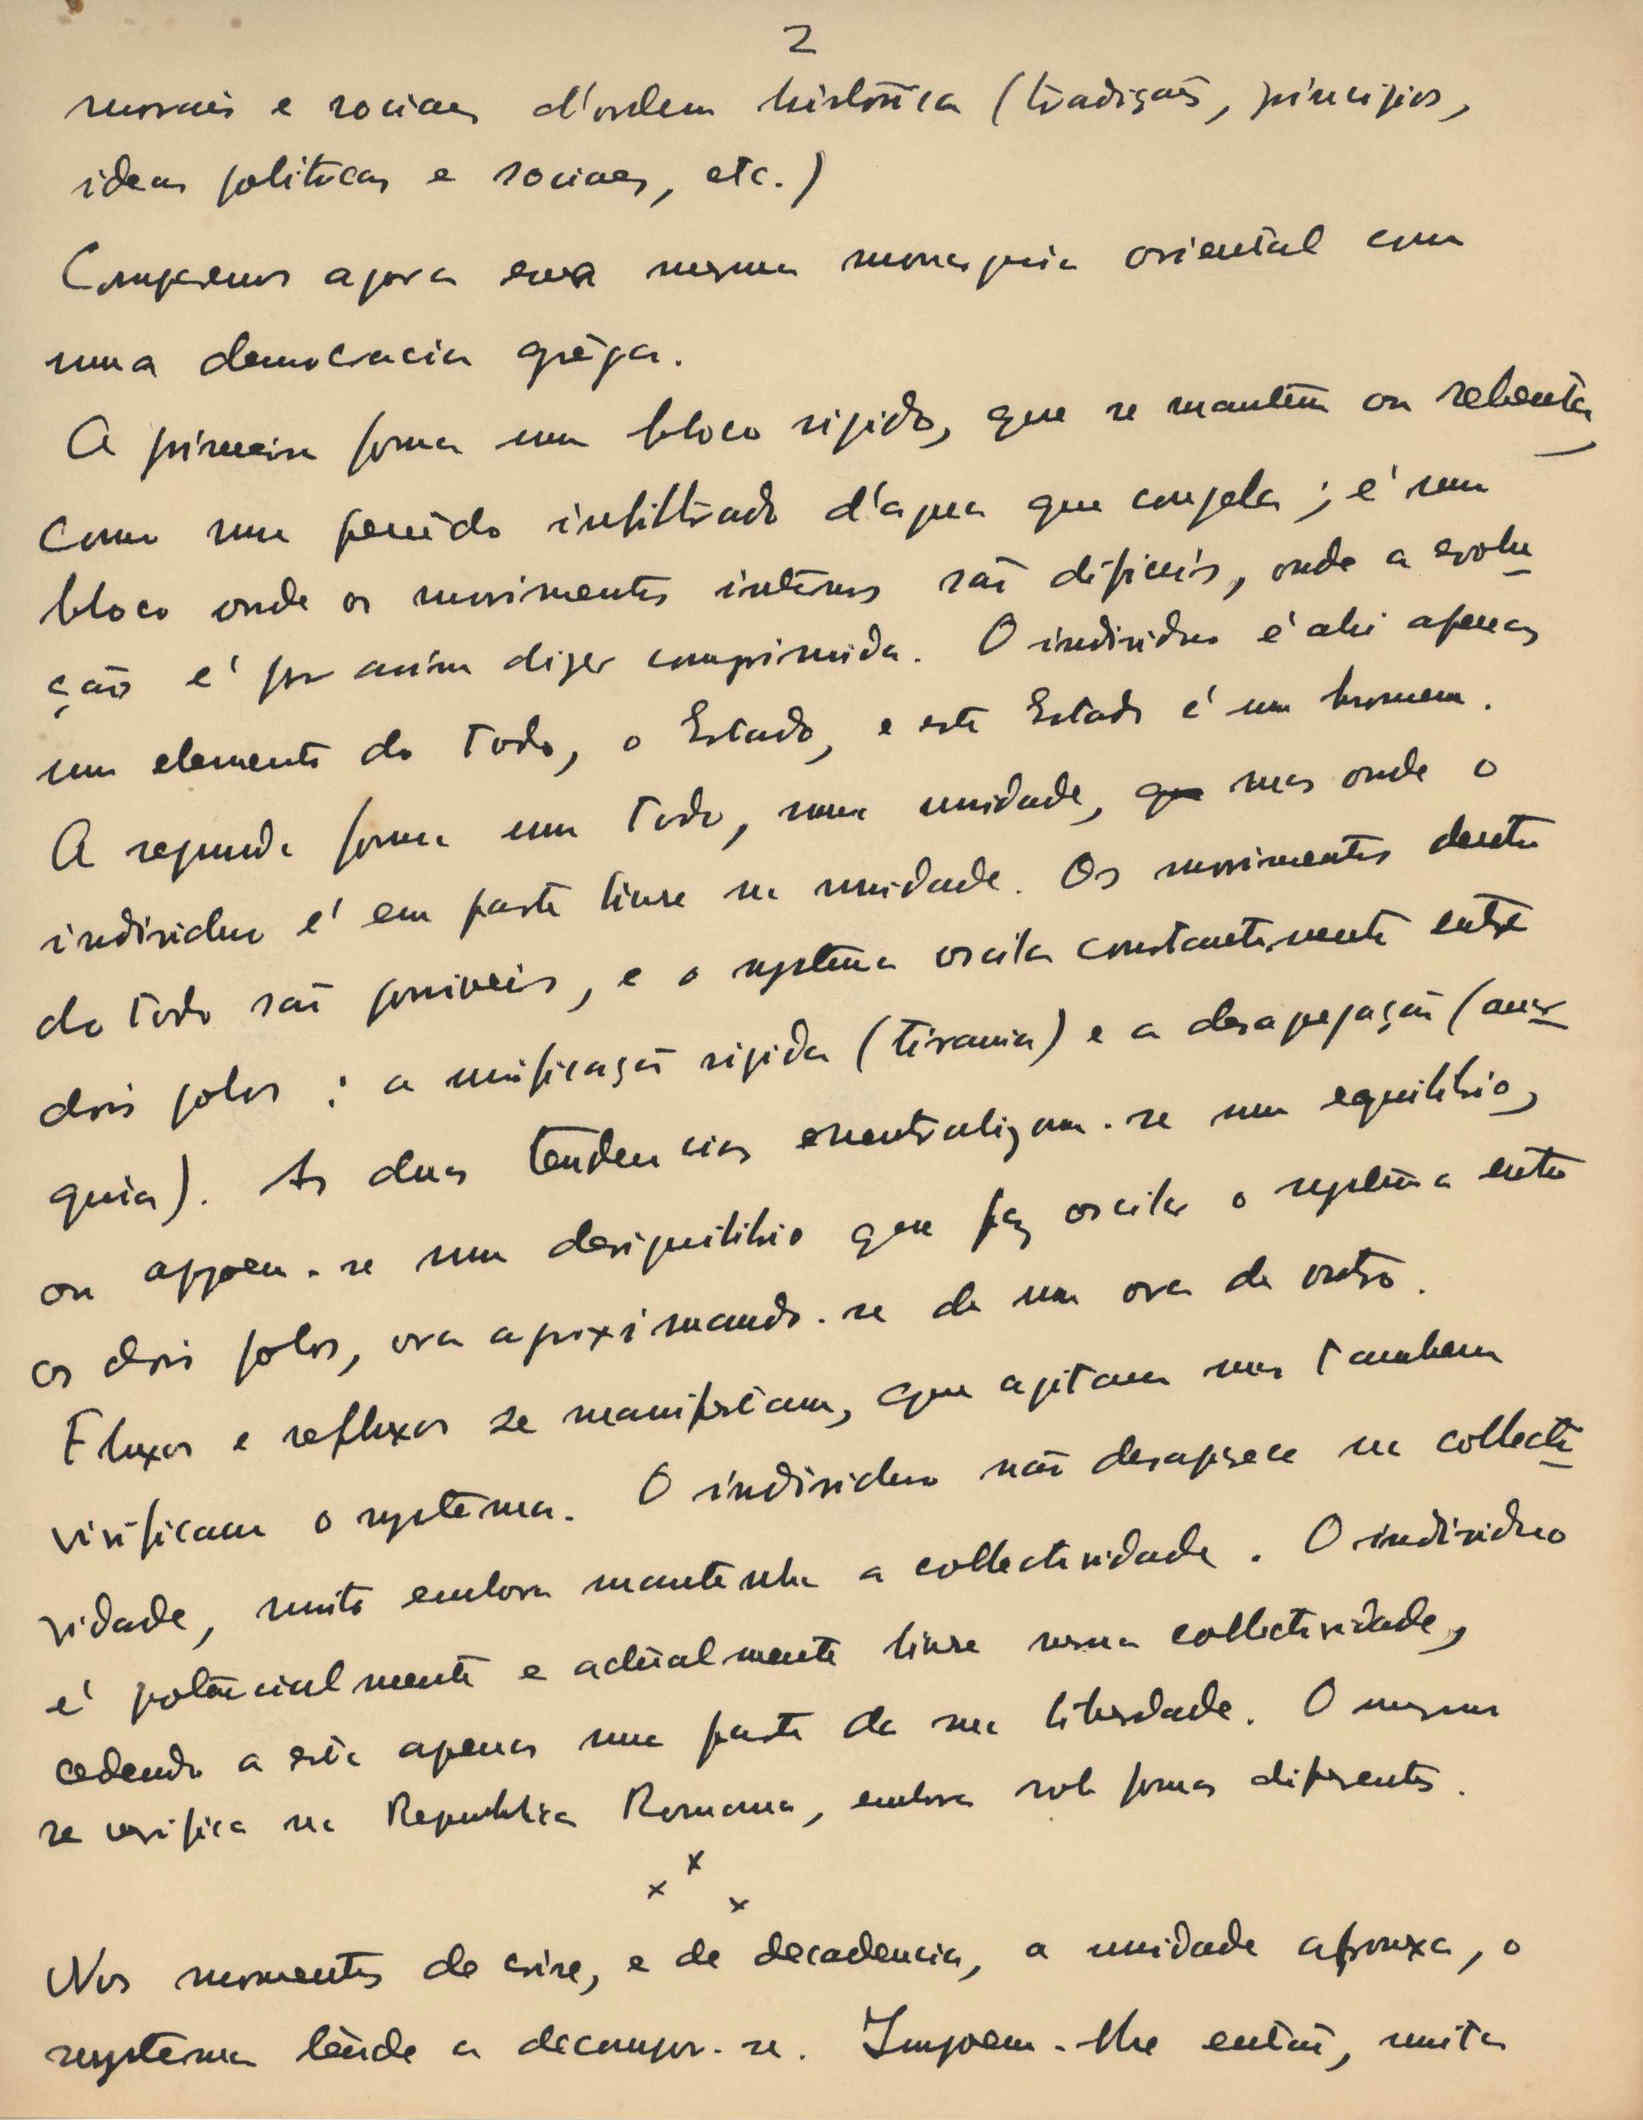 2
moraes e sociaes d'ordem histórica (tradições, principios,
ideas politicas e sociaes, etc.)
Comparemos agora essa mesma monarquia oriental com
uma democracia grêga.
A primeira forma um bloco rigido, que se mantêm ou rebenta,
como um penêdo infiltrado d'agua que congela; é um
bloco onde os movimentos internos são dificeis, onde a evolu-
ção é por assim dizer comprimida. O individuo é ahi apenas
um elemento do todo, o Estado, e este Estado é um homem.
A segunda forma um todo, uma unidade, que mas onde o
individuo é em parte livre na unidade. Os movimentos dentro
do todo são possiveis, e o systêma oscila constantemente entre
dois polos: a unificação rigida (tirania) e a desagregação (anar-
quia). As duas tendencias neutralizam-se num equilibrio,
ou oppoem-se num desiquilibrio que faz oscilar o systêma entre
os dois polos, ora aproximando-se de um ora de outro.
Fluxos e refluxos se manifestam, que agitam mas tambem
vivificam o systêma. O individuo não desaparece na collecti-
vidade, muito embora mantenha a collectividade. O individuo
é potencialmente e actualmente livre nessa collectividade,
cedendo a esta apenas uma parte da sua liberdade. O mesmo
se verifica na Republica Romana, embora sob formas diferentes.
x x x
Nos momentos de crise, e de decadencia, a unidade afrouxa, o
systema tende a decompor-se. Impoem-lhe então, muita